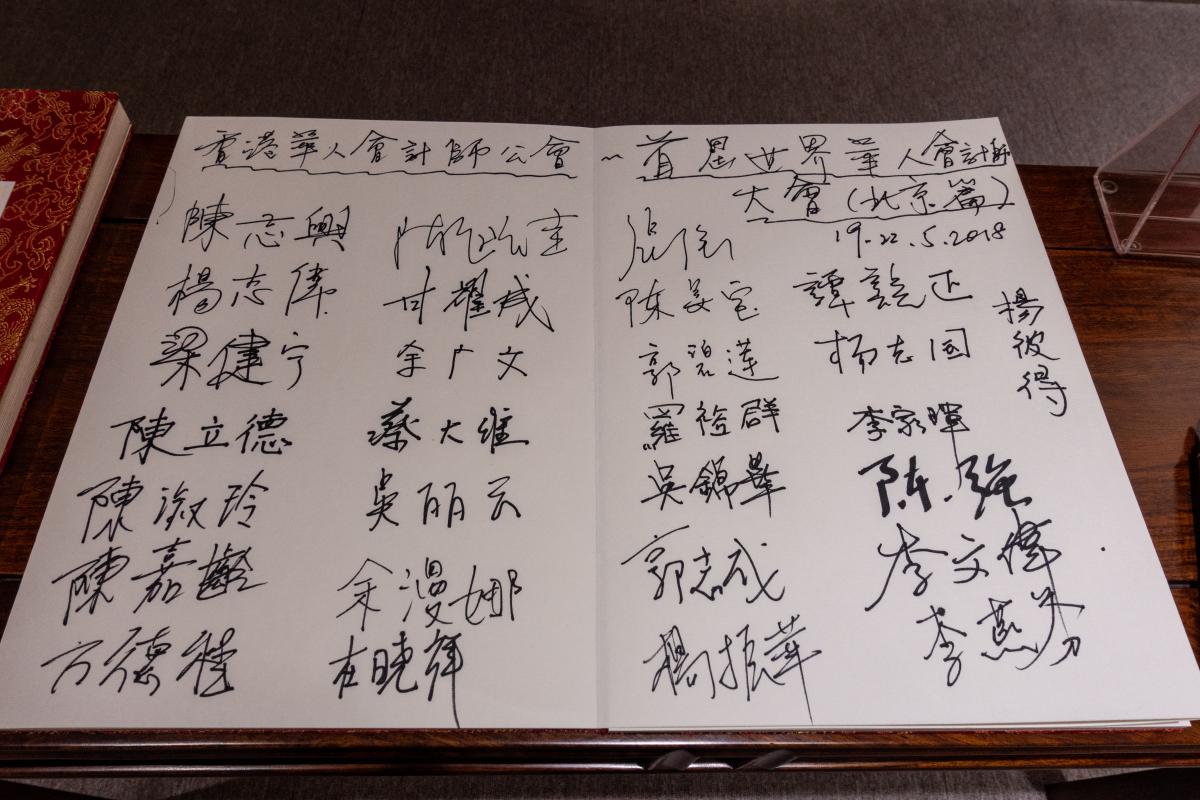 香港華人會計師公會
陳志興
楊志偉
梁健宁
陳立德
陳淑玲
陳嘉齡
方德程
甘耀成
余广文
蔡大維
吳丽云
余漫娜
晓祥
~首屆世界華人會計師
大會(北京篇)
19-22.5.2018
陈美宝
郭碧蓮
羅裕群
吳錦華
郭志成
楊振華
譚競正
杨志国
李家暉
陈强
李文偉
李燕
楊彼得